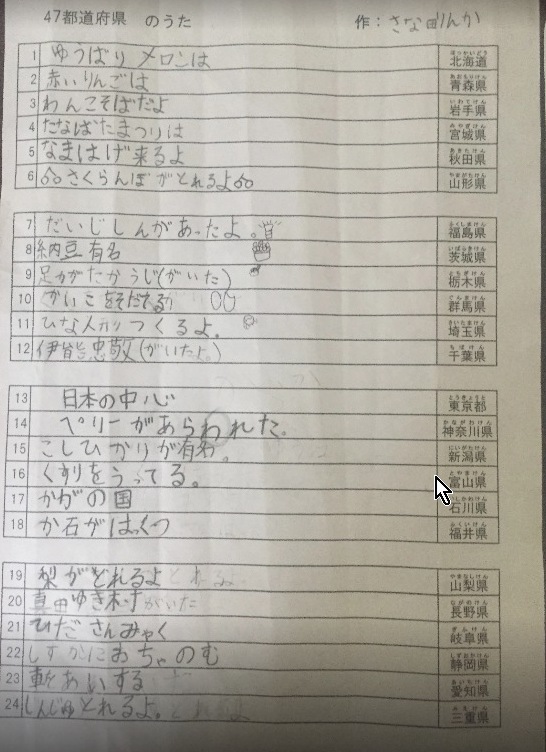 47都道府県 のうた 作：さなだりんか
1 ゆうばり メロンは 北海道
2 赤いりんごは 青森県
3 わんこそばだよ 岩手県
4 たなばたまつりは 宮城県
5 なまはげ来るよ 秋田県
6 さくらんぼがとれるよ 山形県
7 だいじしんがあったよ。 福島県
8 納豆有名 茨城県
9 足かがたかうじ(がいた) 栃木県
10 かいこをそだてるよ 群馬県
11 ひな人形つくるよ。 埼玉県
12 伊能忠敬(がいたよ。) 千葉県
13 日本の中心 東京都
14 ペリーがあらわれた。 神奈川県
15 こしひかりが有名。 新潟県
16 くすりをうってる。 富山県
17 かがの国 石川県
18 か石がはっくつ 福井県
19 梨がとれるよ 山梨県
20 真田ゆき村がいた 長野県
21 ひださんみゃく 岐阜県
22 しずかにおちゃのむ 静岡県
23 あいする 愛知県
24 しんじゅとれるよ。 三重県